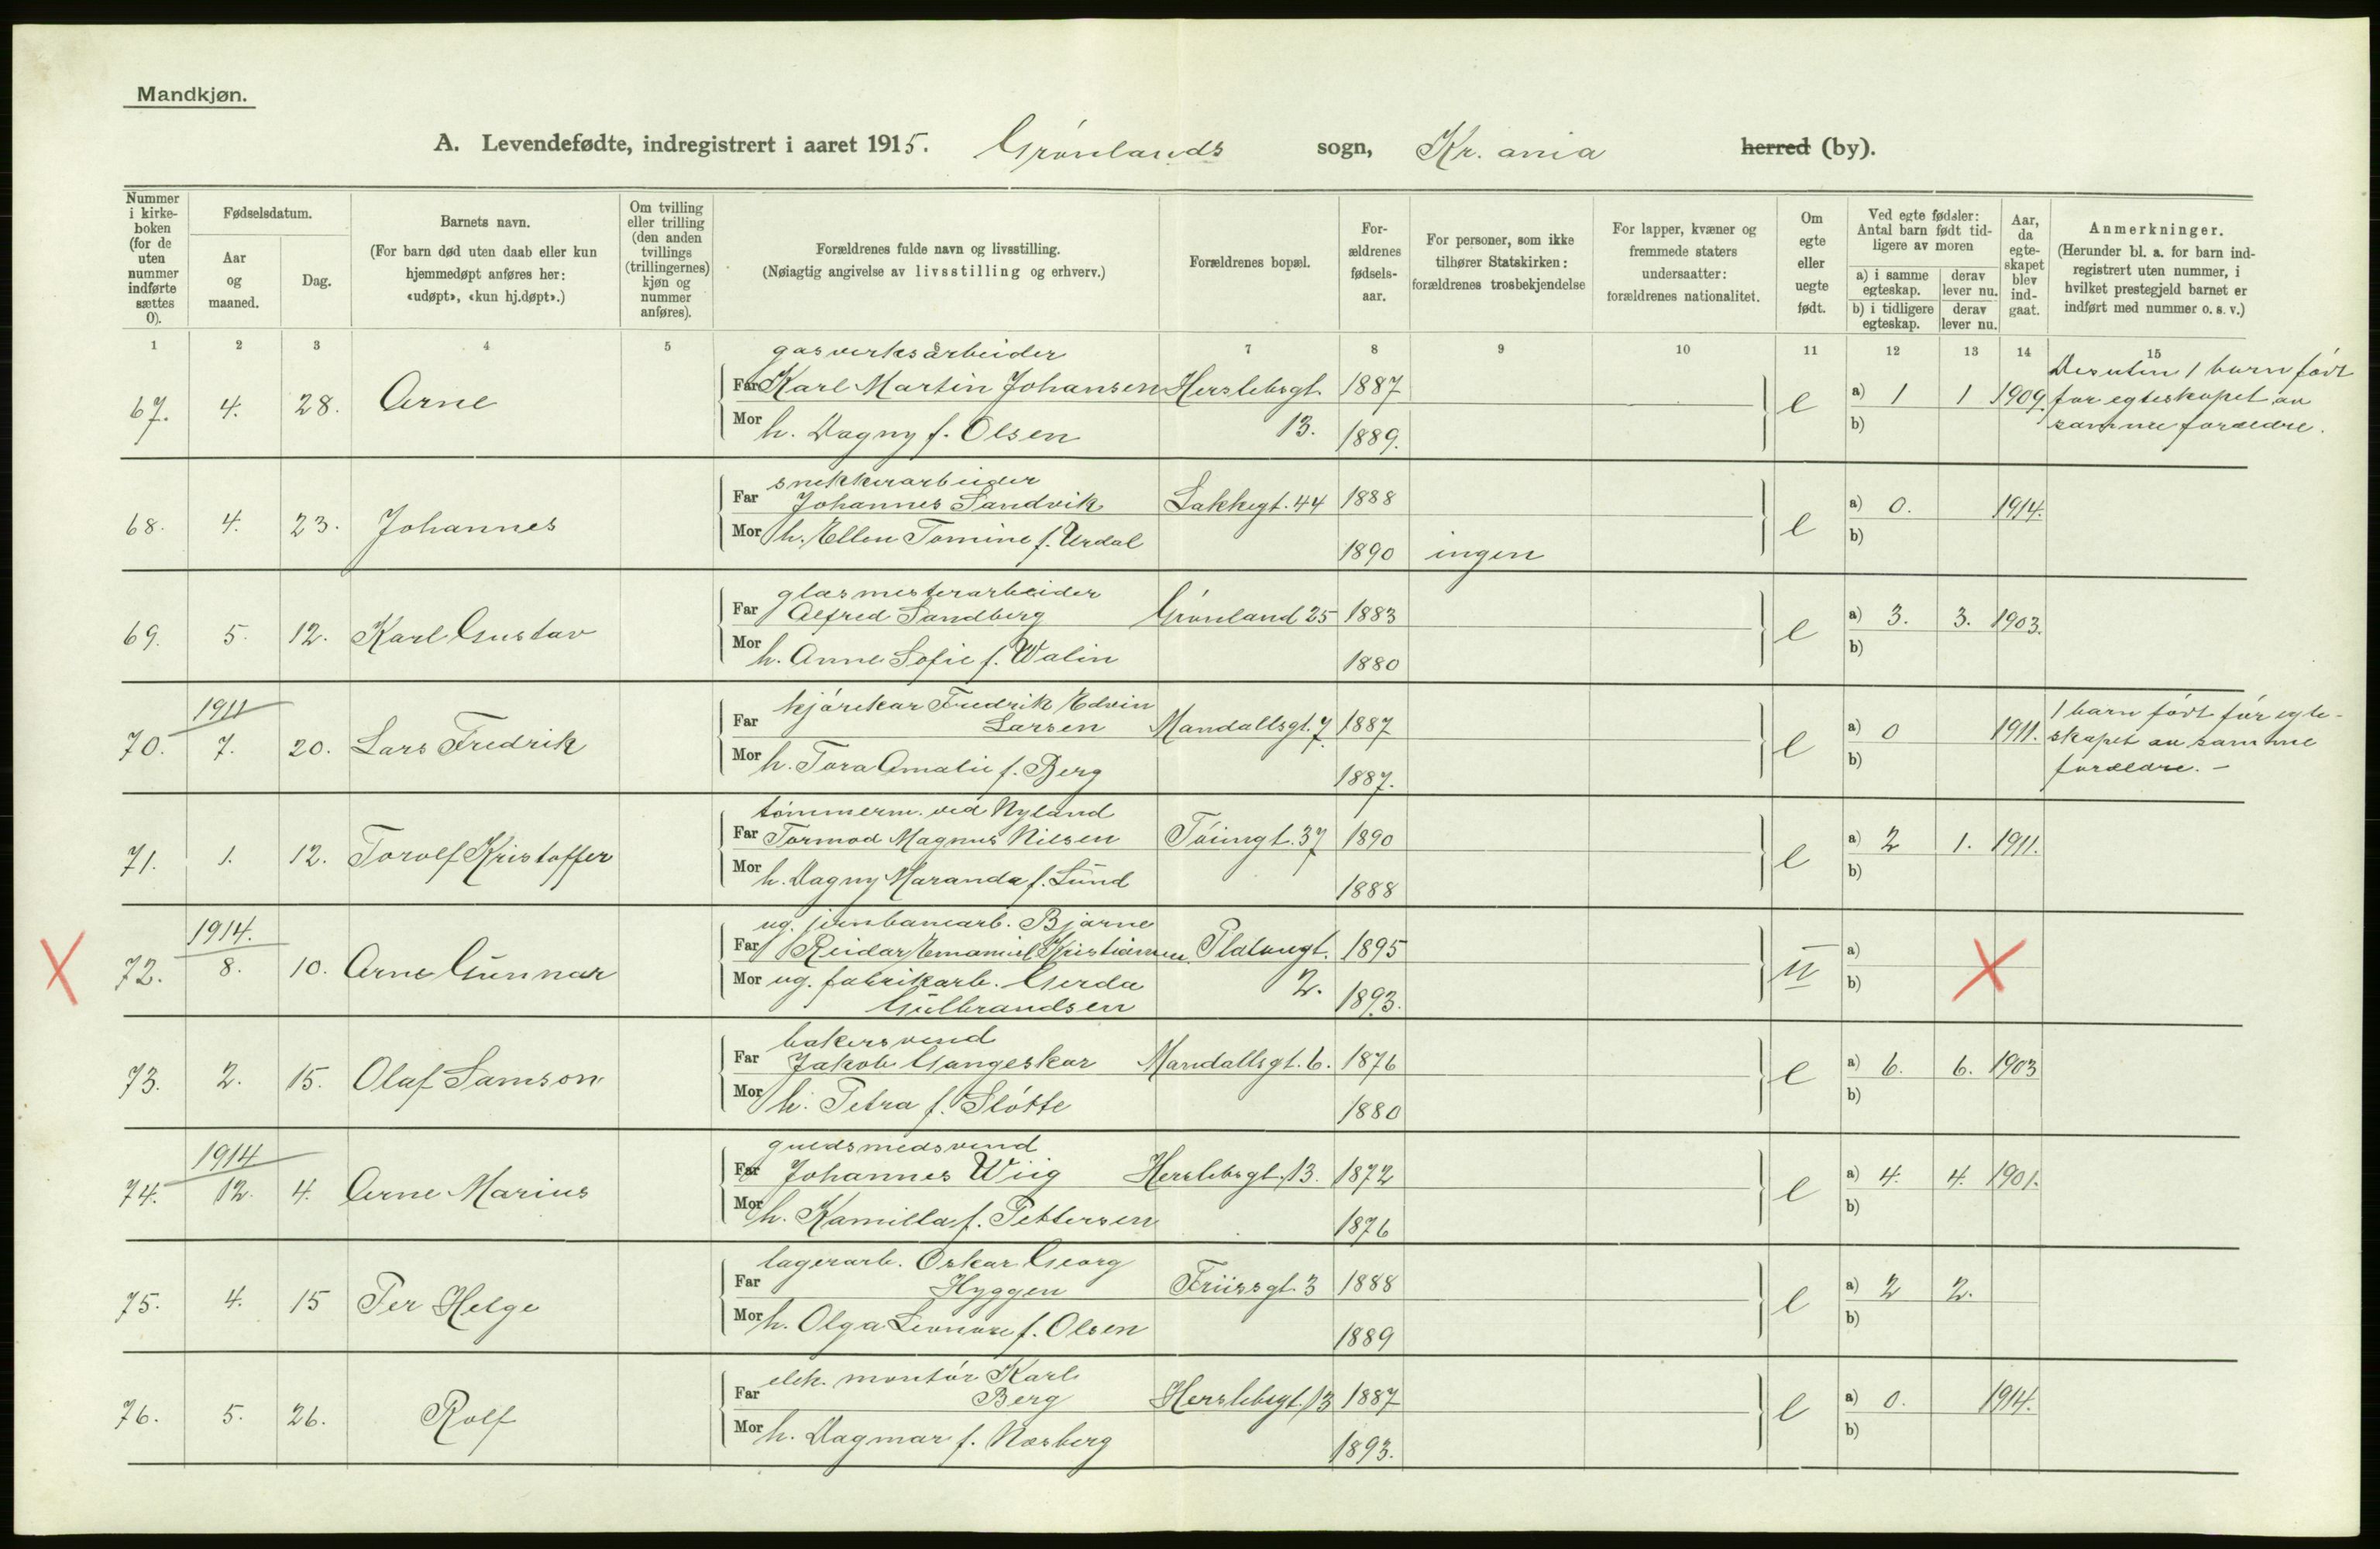 Mandkjøn.
A. Levendefødte, indregistrert i aaret 1915. Grønlands sogn, Kr. ania herred (by).
Nummer i kirke-boken (for de uten nummer indførte sættes 0).
Fødselsdatum.
Aar og maaned.
Dag.
Barnets navn.
(For barn død uten daab eller kun hjemmedøpt anføres her: «udøpt», «kun hj.døpt».)
Om tvilling eller trilling (den anden tvillings (trillingernes) kjøn og nummer anføres).
Forældrenes fulde navn og livsstilling.
(Nøiagtig angivelse av livsstilling og erhverv.)
Forældrenes bopæl.
For-ældrenes fødsels-aar.
For personer, som ikke tilhører Statskirken: forældrenes trosbekjendelse
For lapper, kvæner og fremmede staters undersaatter: forældrenes nationalitet.
Om egte eller uegte født.
Ved egte fødsler: Antal barn født tid-ligere av moren
a) i samme egteskap. derav lever nu.
b) i tidligere egteskap. derav lever nu.
Aar, da egte-skapet blev ind-gaat.
Anmerkninger.
(Herunder bl. a. for barn ind-registrert uten nummer, i hvilket prestegjeld barnet er indført med nummer o. s. v.)
1 2 3 4 5 7 8 9 10 11 12 13 14 15
gasverksarbeider
67. 4. 28. Arne Far Karl Martin Johansen Herslebsgt. 1887 e a) 1 1 1909.
Mor h. Dagny f. Olsen 13. 1889. b)
Desuten 1 barn født
før egteskapet av
samme forældre.
snekkerarbeider
68. 4. 23. Johannes Far Johannes Sandvik Lakkegt. 44 1888 e a) 0. 1914.
Mor h. Ellen Tomine f. Urdal 1890 ingen b)
glasmesterarbeider
69. 5. 12. Karl Gustav Far Alfred Sandberg Grønland 25 1883 e a) 3. 3. 1903.
Mor h. Anne Sofie f. Walin 1880 b)
1911
kjørekar Fredrik Edvin
70. 7. 20. Lars Fredrik Far Larsen Mandallsgt. 7. 1887 e a) 0 1911.
Mor h. Tora Amalie f. Berg 1887. b)
1 barn født før egte-
skapet av samme
forældre. –
tømmerm. ved Nyland
71. 1. 12. Torolf Kristoffer Far Tormod Magnus Nilsen Tøiengt. 37 1890 e a) 2 1. 1911.
Mor h. Dagny Maranda f. Lund 1888 b)
1914.
ug. jernbanearb. Bjarne
X 72. 8. 10. Arne Gunnar Far Reidar Emanuel Kristiansen Platougt. 1895 u a) X
Mor ug. fabrikarb. Gerda 2. 1893. b)
Gulbrandsen
bakersvend
73. 2. 15. Olaf Samson Far Jakob Gangeskar Mandallsgt. 6. 1876 e a) 6. 6. 1903
Mor h. Petra f. Sløtte 1880 b)
1914
guldsmedsvend
74. 12. 4. Arne Marius Far Johannes Wiig Herslebsgt. 13. 1872 e a) 4. 4. 1901.
Mor h. Kamilla f. Pettersen 1876 b)
lagerarb. Oskar Georg
75. 4. 15 Per Helge Far Hyggen Friisgt. 3 1888 e a) 2 2.
Mor h. Olga Leonore f. Olsen 1889 b)
elek. montør Karl
76. 5. 26. Rolf Far Berg Herslebsgt. 13 1887 e a) 0. 1914.
Mor h. Dagmar f. Norberg 1893. b)